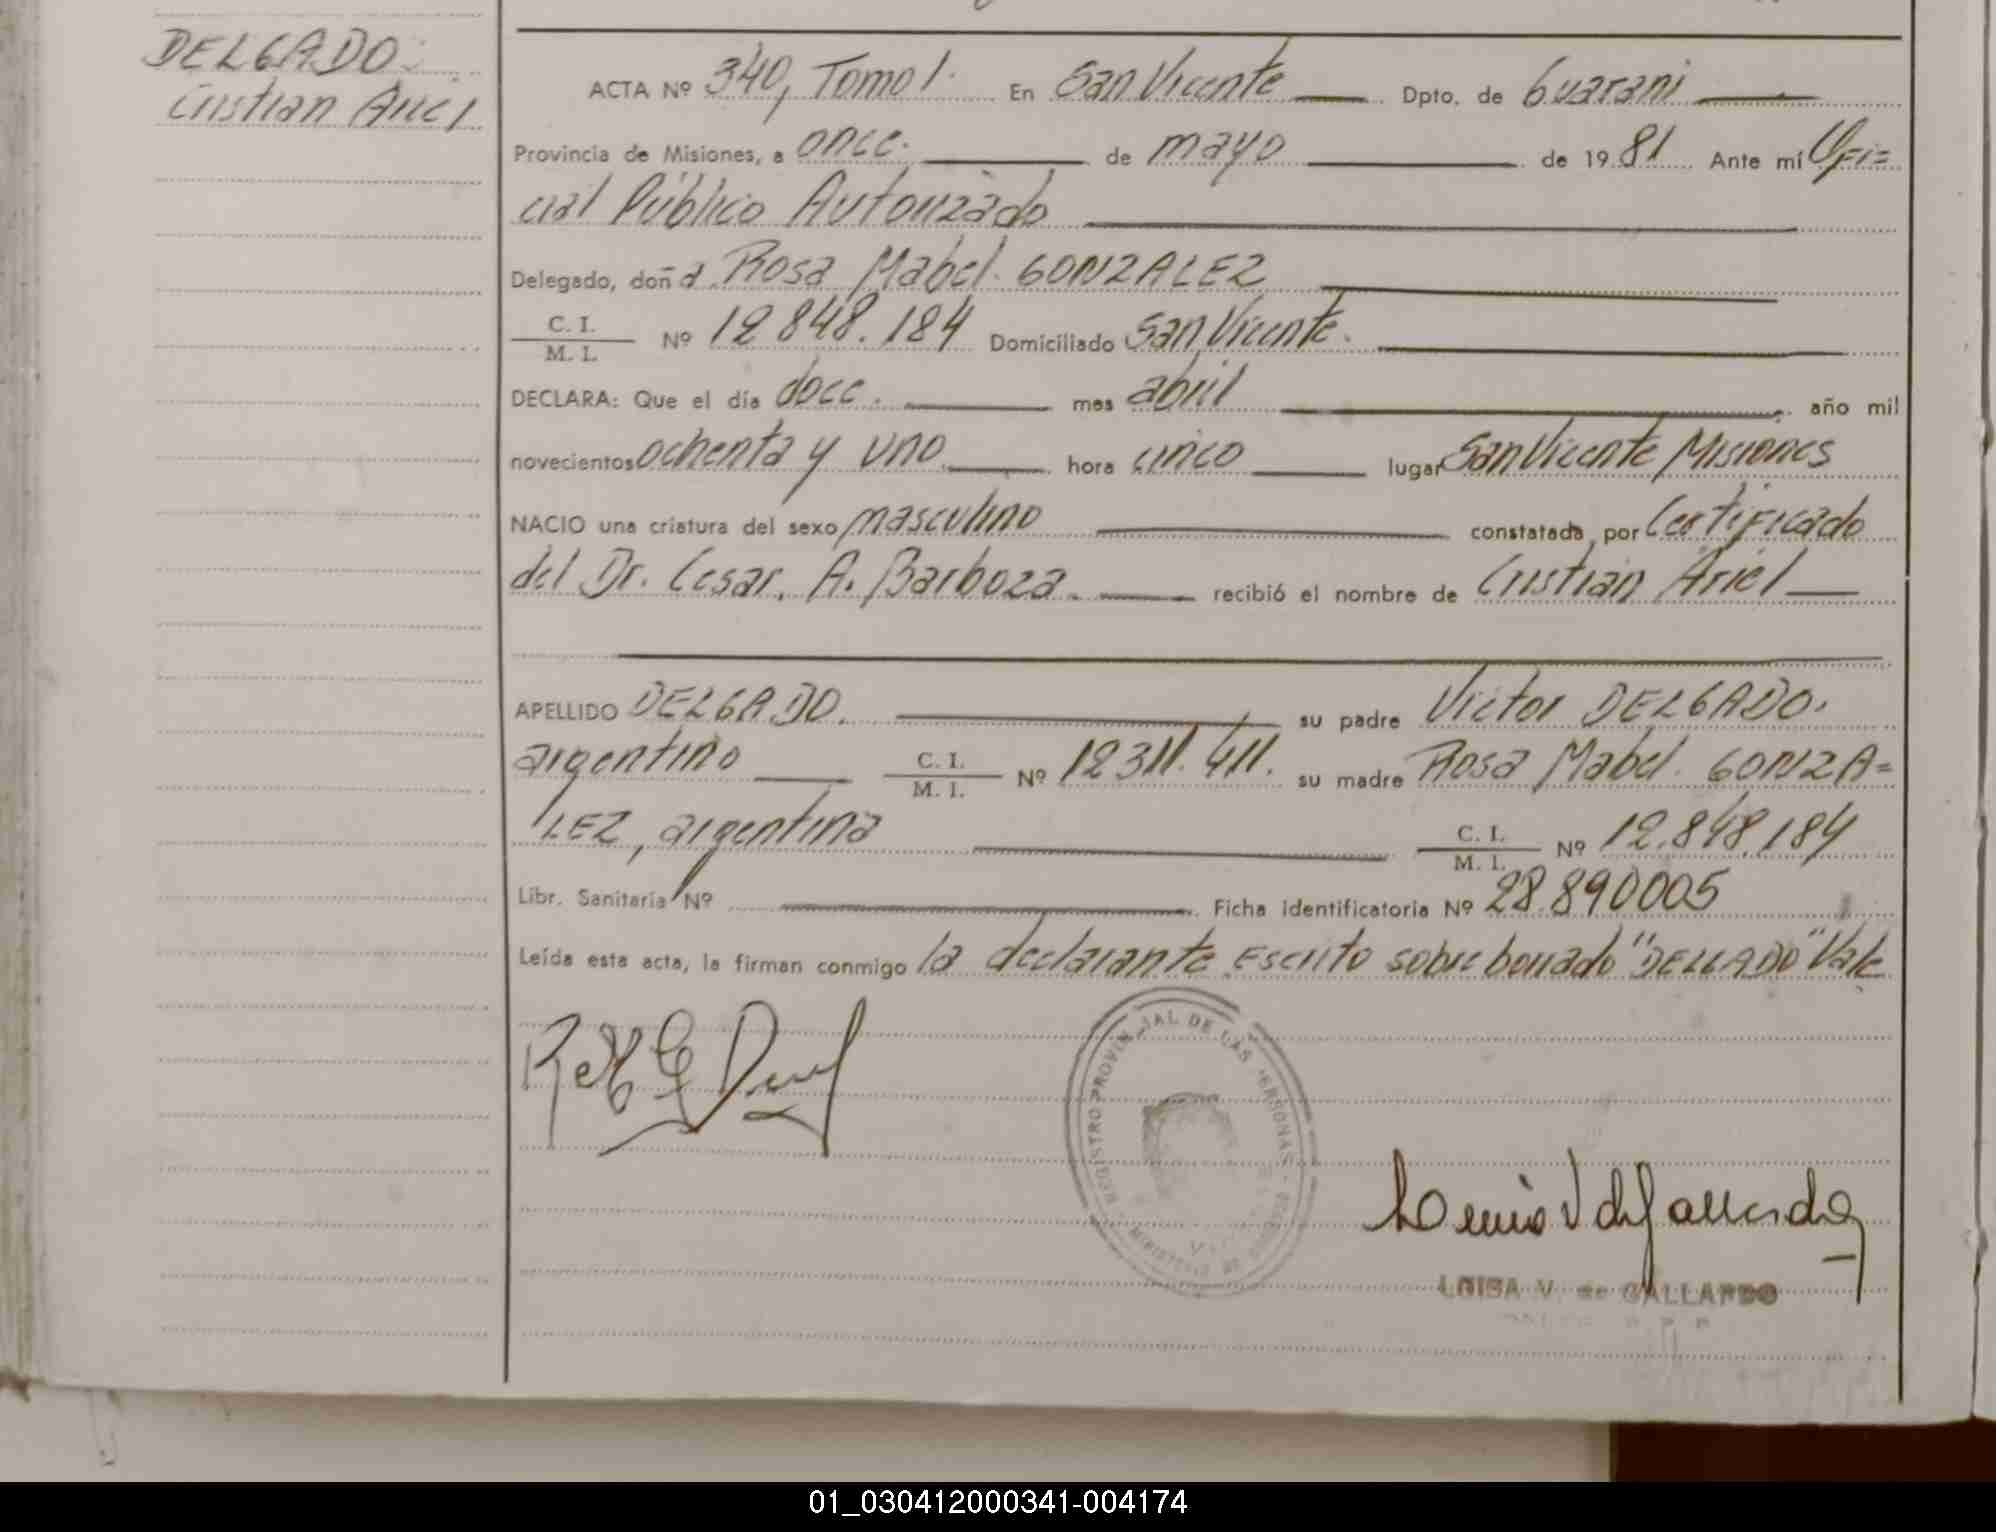 DELGADO.
Cristian Ariel
ACTA Nº 340, Tomo I. En San Vicente Dpto. de Guarani
Provincia de Misiones, a once. de mayo de 1981 Ante mí Ofi=
cial Público Autorizado
Delegado, doña Rosa Mabel. GONZALEZ
C. I.
M. I. Nº 12 848. 184 Domiciliado San Vicente.
DECLARA: Que el día doce. mes abril año mil
novecientos ochenta y uno hora cinco lugar San Vicente Misiones
NACIO una criatura del sexo masculino constatada por Certificado
del Dr. Cesar. A. Barboza. recibió el nombre de Cristian Ariel
APELLIDO DELGADO. su padre Victor DELGADO.
argentino C. I.
M. I. Nº 12 311. 411. su madre Rosa Mabel. GONZA=
LEZ, argentina C. I.
M. I. Nº 12.848.184
Libr. Sanitaria Nº Ficha identificatoria Nº 28.890005
Leída esta acta, la firman conmigo la declarante. Escrito sobre borrado "DELGADO" Vale
REGISTRO PROVINCIAL DE LAS PERSONAS
MINISTERIO DE
LUISA V. de GALLARDO
01_030412000341-004174